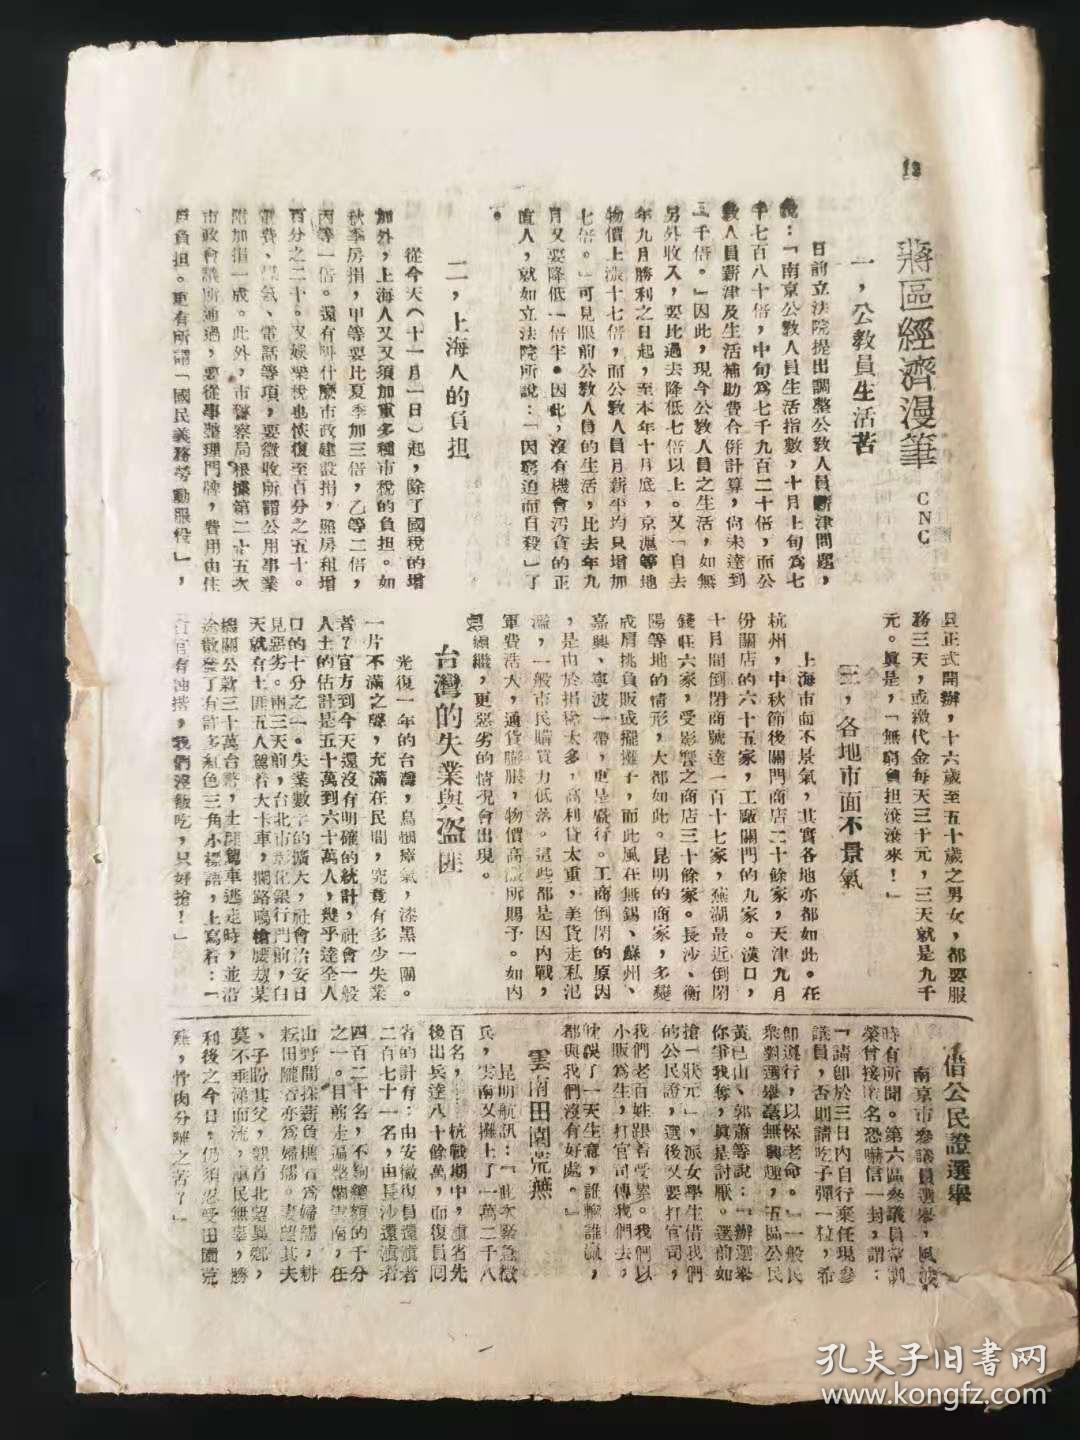 12
蔣區經濟漫筆 CNC
一，公教員生活苦
日前立法院提出調整公教人員薪津問題，
說：「南京公教人員生活指數，十月上旬為七
千七百八十倍，中旬為七千九百二十倍，而公
教人員薪津及生活補助費合併計算，尙未達到
二千倍。」因此，現今公教人員之生活，如無
另外收入，要比過去降低七倍以上。又「自去
年九月勝利之日起，至本年十月底，京滬等地
物價上漲十七倍，而公教人員月薪平均只增加
七倍。」可見眼前公教人員的生活，比去年九
月又要降低一倍半。因此，沒有機會污貪的正
直人，就如立法院所說：「因窮迫而自殺」了
。
二，上海人的負担
從今天（十一月一日）起，除了國稅的增
加外，上海人又又須加重多種市稅的負担。如
秋季房捐，甲等要比夏季加三倍，乙等二倍，
丙等一倍。還有叫什麼市政建設捐，照房租增
百分之二十。又娛樂稅也恢復至百分之五十。
電費、氣、電話等項，要徵收所謂公用事業
附加捐一成。此外，市警察局根據第二十五次
市政會議所通過，要從事整理門牌，費用由住
戶負担。更有所謂「國民義務勞動服役」，
且正式開辦，十六歲至五十歲之男女，都要服
務三天，或繳代金每天三千元，三天就是九千
元。眞是，「無窮負担滾滾來！」
三，各地市面不景氣
上海市面不景氣，其實各地亦都如此。在
杭州，中秋節後關門商店二十餘家，天津九月
份關店的六十五家，工廠關門的九家。漢口，
十月間倒閉商號達一百十七家，蕪湖最近倒閉
錢莊六家，受影響之商店三十餘家。長沙、衡
陽等地的情形，大都如此。昆明的商家，多變
成肩挑負販或擺攤子，而此風在無錫、蘇州、
嘉興、寧波一帶，更是盛行。工商倒閉的原因
，是由於捐稅太多，高利貸太重，美貨走私氾
濫，一般市民購買力低落。這些都是因內戰，
軍費浩大，通貨膨脹，物價高漲所賜予。如內
戰繼續，更惡劣的情況會出現。
台灣的失業與盜匪
光復一年的台灣，烏烟瘴氣，漆黑一團。
一片不滿之聲，充滿在民間，究竟有多少失業
者？官方到今天還沒有明確的統計，社會一般
人士的估計是五十萬到六十萬人，幾乎達全人
口的十分之一。失業數字的擴大，社會治安日
見惡劣。兩三天前，台北市彰化銀行門前，白
天就有土匪五人駕着大卡車，攔路鳴槍腰刼某
機關公款三十萬台幣，土匪駕車逃走時，並沿
途散發了有許多紅色三角小標語，上寫着：「
有官有油揩，我們沒飯吃，只好搶！」
借公民證選舉
南京市參議員選舉，風波
時有所聞。第六區參議員
榮曾接匿名恐嚇信一封，謂：
「請卽於三日內自行棄任現參
議員，否則請吃子彈一粒，希
卽遵行，以保老命。」一般民
衆對選舉毫無興趣，五區公民
黃已山、郭蕭等說：「辦選舉
你爭我奪，眞是討厭。選前如
搶「狀元」，派女學生借我們
的公民證，選後又要打官司，
我們老百姓跟着受累。我們以
小販為生，打官司傳我們去，
就誤了一天生意，誰輸誰贏，
都與我們沒有好處。」
雲南田園荒蕪
昆明航訊：「此次緊急徵
兵，雲南又攤上了一萬二千八
百名，抗戰期中，滇省先
後出兵達八十餘萬，而復員囘
省的計有：由安徽復員還滇者
二百七十一名，由長沙還滇者
四百二十名，不夠總額的千分
之一。目前走遍整個雲南，在
山野間採薪負樵者為婦孺，耕
耘田隴者亦為婦孺。妻望其夫
、子盼其父，親首北望異鄉，
莫不垂涕而流，滇民無辜，勝
利後之今日，仍須忍受田園荒
蕪，骨肉分離之苦？」
孔夫子旧书网
www.kongfz.com